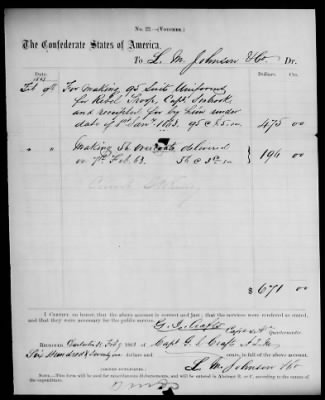 No. 22.—(Voucher.)
The Confederate States of America,
To L. M. Johnson & Co Dr.
Date. Dollars. Cts.
1863
Feb 9th For making 95 Suits Uniforms
for Rebel Troop, Capt.
and receipted for by him under
date of 1st Jany 1863. 95 @ $5.00 475 00
" " Making 56 overcoats delivered
on 7th Feb 63. 56 @ 196 00
$ 671 00
I Certify on honor, that the above account is correct and just; that the services were rendered as stated,
and that they were necessary for the public service.
Quartermaster.
Received Feb 9 1863 of Capt G. I. Crafts A.Q.M.
Six Hundred & Seventy one dollars and cents, in full of the above account.
L. M. Johnson & Co
(Signed duplicates.)
NOTE.—This form will be used for miscellaneous disbursements, and will be entered in Abstract B. or C. according to the nature of
the expenditure.